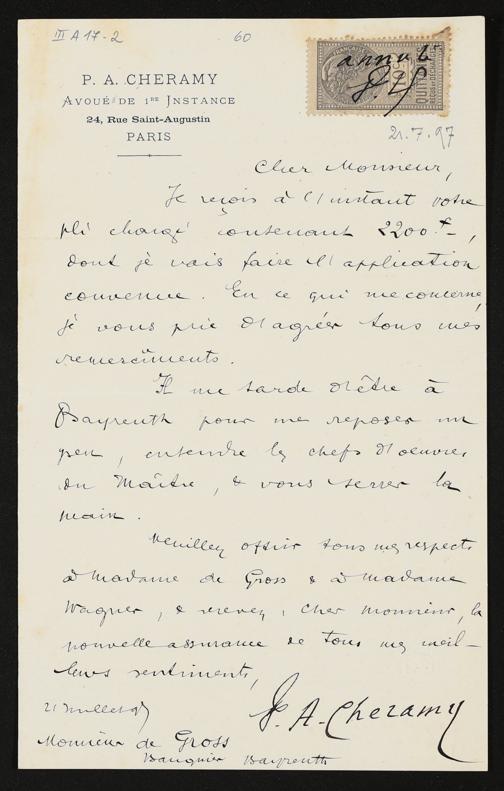 III A 17-2
60
P. A. CHERAMY
AVOUÉ DE 1RE INSTANCE
24, Rue Saint-Augustin
PARIS
21.7.97
Cher Monsieur,
Je reçois à l'instant votre
pli chargé contenant 2200 f,
dont je vais faire l'application
convenue. En ce qui me concerne,
je vous prie d'agréer tous mes
remerciments.
Il me tarde d'être à
Bayreuth pour me reposer un
peu, entendre les chefs d'oeuvre
du Maître, & vous serrer la
main.
Veuillez offrir tous mes respects
à Madame de Gross & à Madame
Wagner, & recevez, cher Monsieur, la
nouvelle assurance de tous mes meil-
leurs sentiments,
P. A. Cheramy
21 Juillet 97
Monsieur de Gross
Banquier Bayreuth